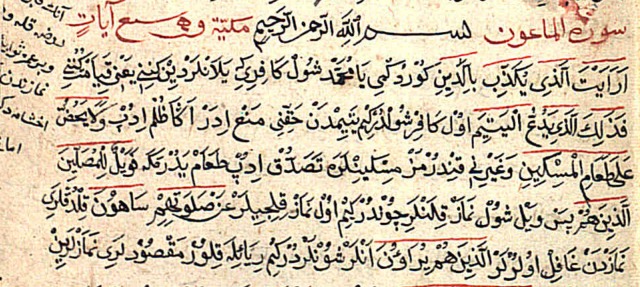 سورة الماعون بسم الله الرحمن الرحيم مكية وهي سبع آيات
اَرَاَيْتَ الَّذِي يُكَذِّبُ بِالدِّينِ كوردكمي يا محمد شول كافري يلانلر دين كنني يعني قيامت كنني
فَذٰلِكَ الَّذِي يَدُعُّ الْيَتِيمَ اول كافر شولدركم يتيمدن حقني منع ايدر اكا ظلم ايدب وَلَا يَحُضُّ
عَلٰى طَعَامِ الْمِسْكِينِ وغيريني قندرمز مسكينلره تصدق ايدب طعام يدرمكه فَوَيْلٌ لِلْمُصَلِّينَ
الَّذِينَ هُمْ پس ويل شول نماز قلنلر چوندركم اول نماز قليجيلر عَنْ صَلٰوتِهِمْ سَاهُونَ قلدقلري
نمازدن غافل اولورلر الَّذِينَ هُمْ يُرَاؤُنَ انلر شونلردركم ريائله قلور مقصودلري نمازلرين